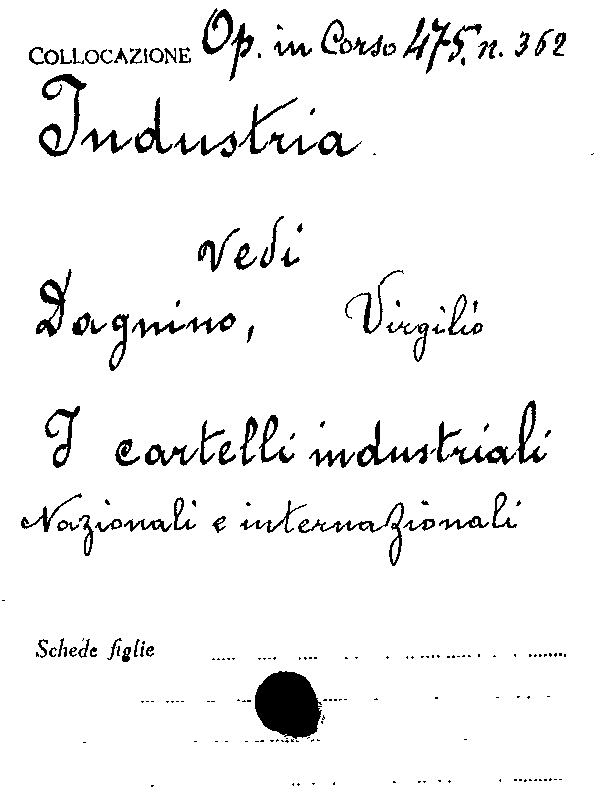 COLLOCAZIONE Op. in Corso 475. n. 362
Industria
vedi
Dagnino, Virgilio
I cartelli industriali
Nazionali e internazionali
Schede figlie